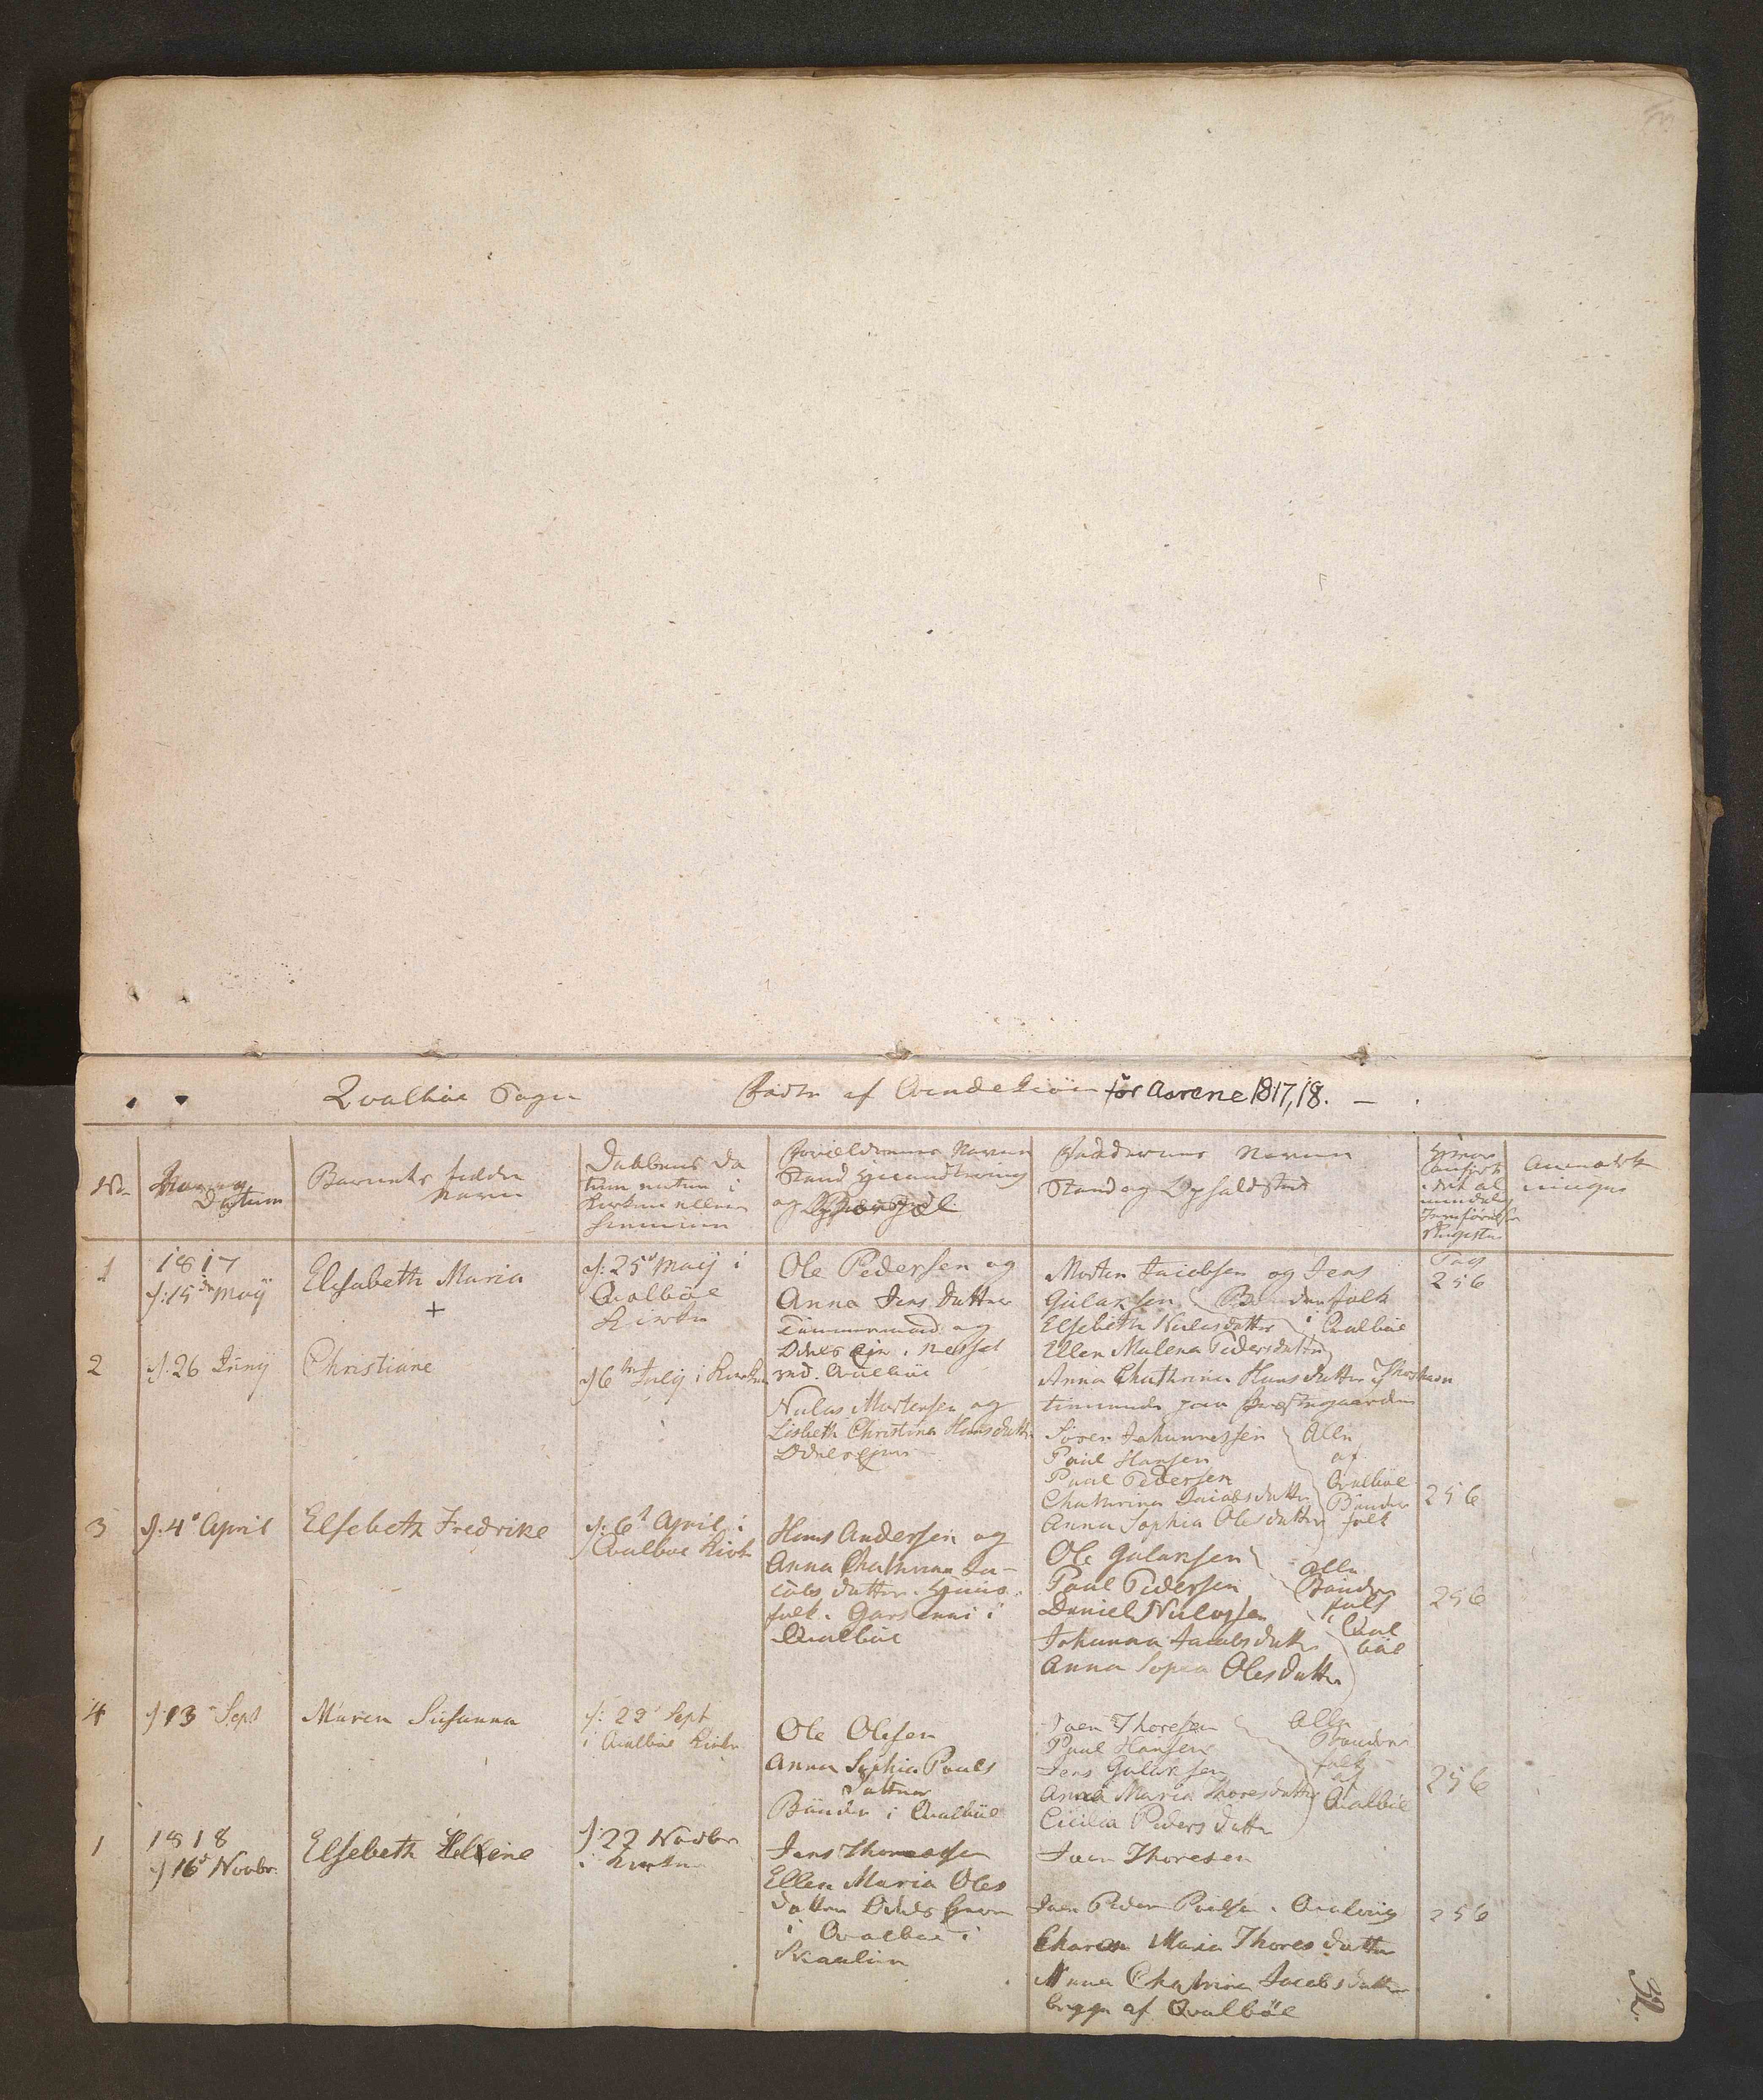 Qvalböe Sogn
Födte af Qvindekiön for Aarene 1817, 18.
No
Aar og
Datum
Barnets fulde
Navn
Daabens Da
tum enten i
Kirken eller
hiemme
Forældrenes Navn
Stand Haandtering
og
Faddernes Navn
Stand og Opholdsted
anført
i det al
mindelig
Jevnførelses
Register
Anmærk
ninger
1
1817
d: 15de Maÿ
Elisabeth Maria
+
d: 25d Maÿ i
Qvalböe
Kirke
Ole Pedersen og
Anna Jens Datter
Tömmermand og
i Nesset
ved Qvalböe
Morten Jacobsen og Jens
Gulaksen Bönderfolk
Elsebeth Nielasdatter i Qvalböe
Ellen Malena Pedersdatter
Pag
256
2
d. 26 Junÿ
Christiane
d 6te Julÿ i Kirken
Nielas Mortensen og
Lisbeth Christina Hansdatter
Anna Chathrina Hansdatter i Thorshavn
paa Præstegaarden
Sören Johannessen
Paul Hansen
Paul Pedersen
Chatrina Jacobsdatter
Anna Sophia Olesdatter
Alle
af
Qvalböe
Bönder
folk
256
3
d: 4de April
Elsebeth Fredrike
d: 6t April i
Qvalböe Kirke
Hans Andersen og
Anna Chathrina Ja-
cobs datter Huus-
folk i
Qvalböe
Ole Gulaksen
Paul Pedersen
Daniel Nielassen
Johanna Jacobsdatter
Anna Sopia Olesdatter
Alle
Bönder
folk
Qval
böe
256
4
d 13 Sept
Maren Susanna
d: 22 Sept
i Qvalböe Kirke
Ole Olesen
Anna Sophia Pouls
Datter
Bönder i Qvalböe
Joen Thoresen
Paul Hansen
Jens Gulaksen
Anna Maria Thoresdatter
Cicilia Peders Datter
Alle
Bönder
folk
af
Qvalböe
256
1
1818
d 16d Novbr.
Elsebeth Hellene
d 22 Novbr
i Kirken
Jens Thoresen
Ellen Maria Oles
datter
i Qvalböe i
Joen Thoresen
Joen Peder Poulsen
Maria Thores datter
Anna Chatrina Jacobsdatter
begge af Qvalböe
256
32.